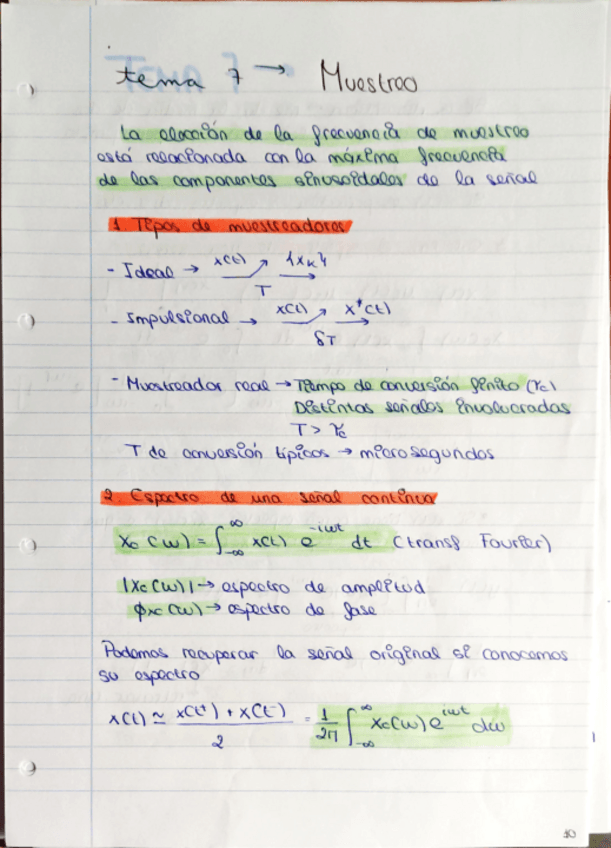 tema 7 → Muestreo
La elección de la frecuencia de muestreo
está relacionada con la máxima frecuencia
de las componentes sinusoidales de la señal
1. Tipos de muestreadores
- Ideal → x(t) {x_k}
T
- Impulsional → x(t) x*(t)
δT
- Muestreador real → Tiempo de conversión finito (τc)
Distintas señales involucradas
T > τc
T de conversión típicos → microsegundos
2. Espectro de una señal continua
Xc (ω) = ∫_{-∞}^{∞} x(t) e^{-iωt} dt (transf Fourier)
|Xc (ω)| → espectro de amplitud
φxc (ω) → espectro de fase
Podemos recuperar la señal original si conocemos
su espectro
x(t) ≃ x(t⁺) + x(t⁻) / 2 = 1/2π ∫_{-∞}^{∞} Xc(ω) e^{iωt} dω
10